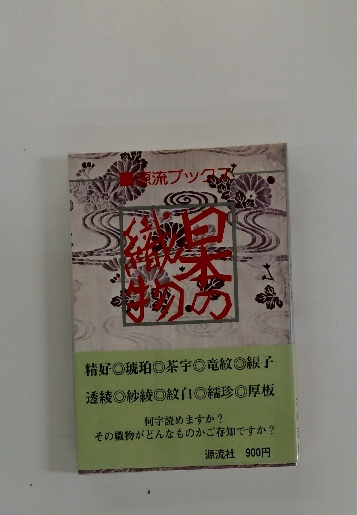 源流ブックス
日本の
織物
精好◎琥珀◎茶宇◎竜紋◎綟子
透綾◎紗綾◎紋白◎繻珍◎厚板
何字読めますか?
その織物がどんなものかご存知ですか?
源流社 900円